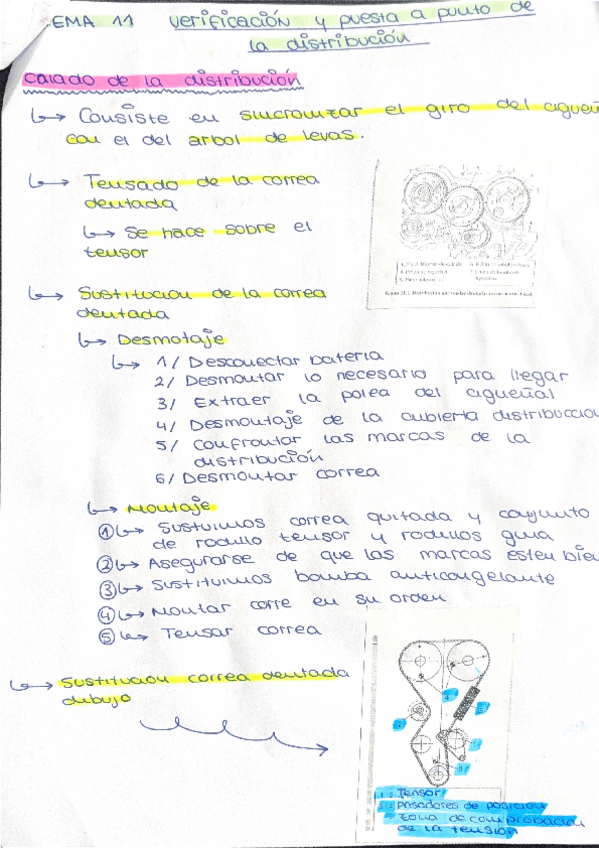 EMA 11 verificación y puesta a punto de
la distribución
calado de la distribución
↳ Consiste en sincronizar el giro del cigueñ
con el del arbol de levas.
↳ Tensado de la correa
dentada
↳ Se hace sobre el
tensor
↳ Sustitucion de la correa
dentada
↳ Desmotaje
↳ 1/ Desconectar bateria
2/ Desmontar lo necesario para llegar
3/ Extraer la polea del cigueñal
4/ Desmontaje de la cubierta distribuccion
5/ confrontar las marcas de la
distribución
6/ Desmontar correa
↳ Montaje
① ↳ Sustuimos correa quitada y conjunto
de rodillo tensor y rodillos guia
② ↳ Asegurarse de que las marcas esten bien
③ ↳ Sustituimos bomba anticongelante
④ ↳ Montar corre en su orden
⑤ ↳ Tensar correa
↳ Sustitucion correa dentada
dibujo
Tensor
pasadores de posicion
zona de comprobacion
de la tension